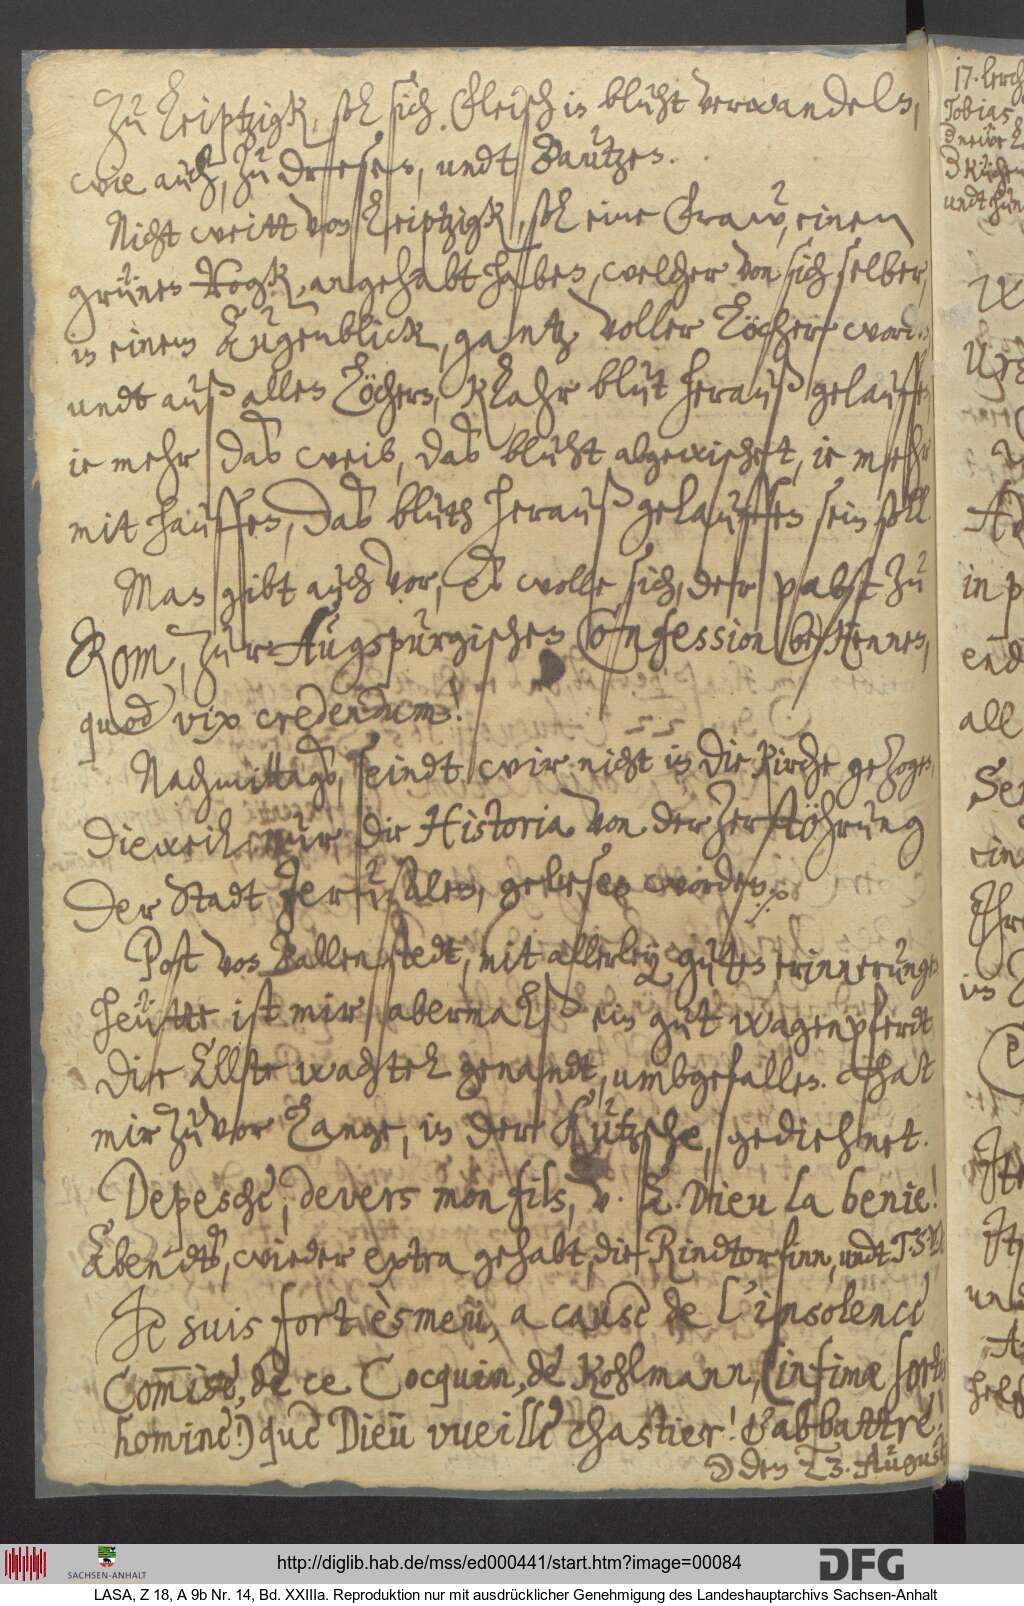 Zu Leiptzigk, soll sich Fleisch in bluht verwandeln,
wie auch, zu Dresen, undt Bautzen.
Nicht weitt von Leiptzigk, soll eine Fraw, einen
grünen Rogk, angehabt haben, welcher von sich selber,
in einem Augenblick, gantz voller Löcher word:
undt auß allen Löchern, klahr blut herauß gelauffen
ie mehr das weib, das bluht abgewischet, ie mehr
mit hauffen, das bluth herauß gelauffen sein soll.
Man gibt auch vor, es wolle sich, der pabst zu
Rom, zur Augspurgischen Confession bekennen,
quod vix credendum!
Nachmittags, seindt wir nicht in die Kirche gezogen,
dieweil nur, die Historia von der zerstöhrung
der Stadt Jerusalem, gelesen worden.
Post von Ballenstedt, mit allerley guten erinnerungen
heütte ist mir abermalß ein gut wagenpferdt
die Ellste wachtel genandt, umbgefallen. hat
mir zuvor lange, in der kutzsche, gediehnet.
Depesche, devers mon fils, v. E. Dieu la benie!
Abendts, wieder extra gehabt, die Rindtorfinn, undt T. S. P.
Je suis fort èsmeü, a cause de l'insolence
Comise, de ce Cocquin, de Kohlmann, (infimæ sortis
homine!) que Dieü vueille chastier! & abbattre!
den 23. August
17. lerch
Tobias
3 küchen
undt hün
in p
end
all
ein
Ehr
in
Jtt
Jtt
und
A
http://diglib.hab.de/mss/ed000441/start.htm?image=00084
SACHSEN-ANHALT
DFG
LASA, Z 18, A 9b Nr. 14, Bd. XXIIIa. Reproduktion nur mit ausdrücklicher Genehmigung des Landeshauptarchivs Sachsen-Anhalt